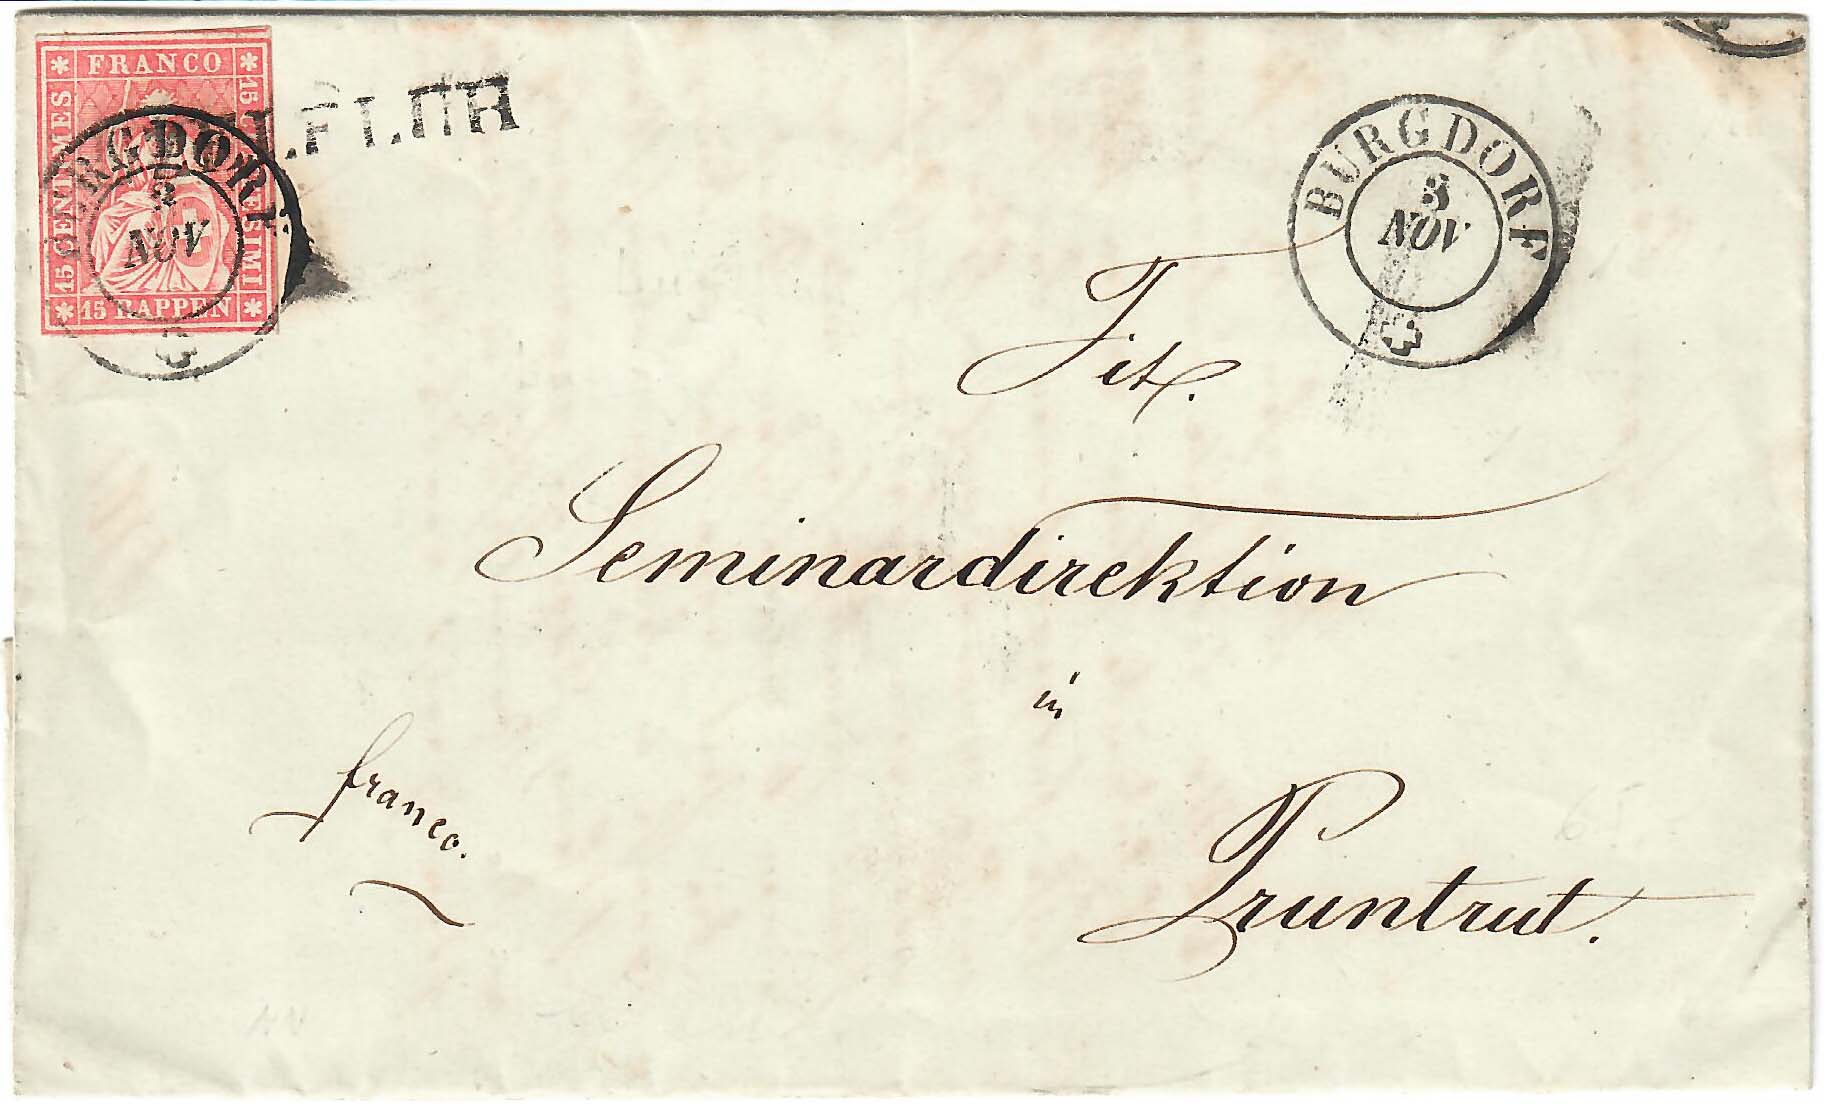 FRANCO
15 CENTIMES
15 CENTESIMI
15 RAPPEN
BURGDORF
3
NOV
BURGDORF
3
NOV
Tit.
Seminardirektion
in
Pruntrut.
franco.